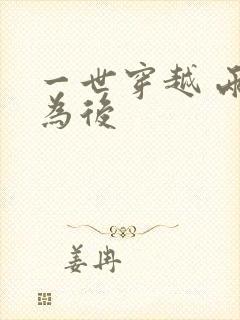 一世穿越
為後
姜冉